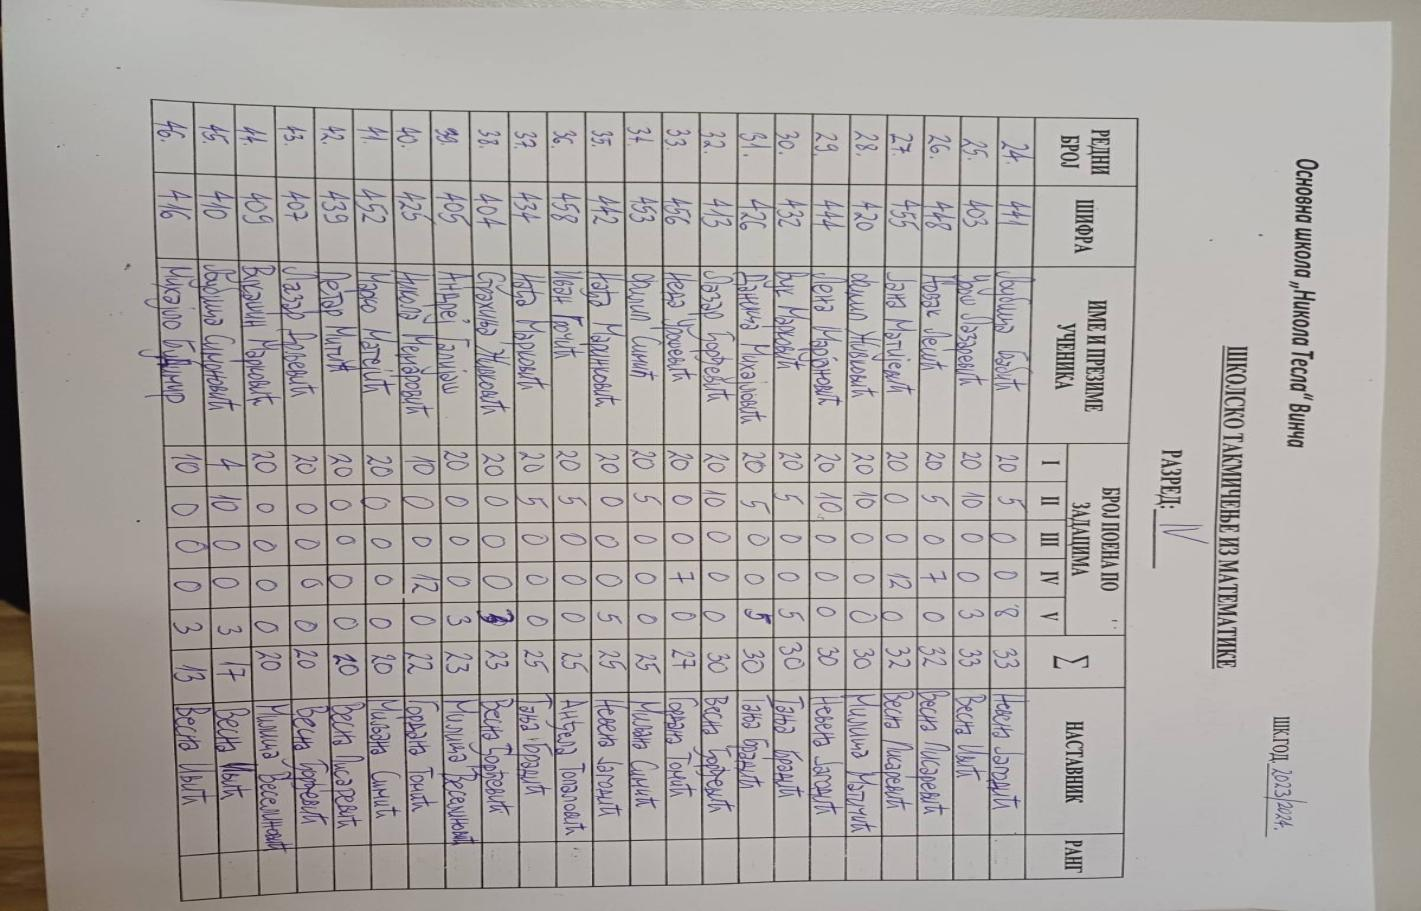 Основна школа „Никола Тесла“ Винча
ШК.ГОД. 2023/2024.
ШКОЛСКО ТАКМИЧЕЊЕ ИЗ МАТЕМАТИКЕ
РАЗРЕД: IV
РЕДНИ БРОЈ ШИФРА ИМЕ И ПРЕЗИМЕ УЧЕНИКА БРОЈ ПОЕНА ПО ЗАДАЦИМА ∑ НАСТАВНИК РАНГ
I II III IV V
24. 441 Љубица Бабић 20 5 0 0 8 33 Невена Јагодић
25. 403 Урош Лазаревић 20 10 0 0 3 33 Весна Ивић
26. 448 Лешић 20 5 0 7 0 32 Весна Писаревић
27. 455 Јана Матијевић 20 0 0 12 0 32 Весна Писаревић
28. 420 Филип Живковић 20 10 0 0 0 30 Милица Матичић
29. 444 Лена Марјановић 20 10 0 0 0 30 Невена Јагодић
30. 432 Вук Марковић 20 5 0 0 5 30 Тања Брадић
31. 426 Даница Михајловић 20 5 0 0 5 30 Тања Брадић
32. 413 Лазар Ђорђевић 20 10 0 0 0 30 Весна Ђорђевић
33. 456 Неђа Урошевић 20 0 0 7 0 27 Гордана Тонић
34. 453 Филип Симић 20 5 0 0 0 25 Миљана Симић
35. 442 Маша Маринковић 20 0 0 0 5 25 Невена Јагодић
36. 458 Иван Грочић 20 5 0 0 0 25 Анђела Топаловић
37. 434 Марковић 20 5 0 0 0 25 Тања Брадић
38. 404 Страхиња Живковић 20 0 0 0 3 23 Весна Ђорђевић
39. 405 Андреј 20 0 0 0 3 23 Милица Веселиновић
40. 425 Никола 10 0 0 12 0 22 Гордана Тонић
41. 452 Марко Матејић 20 0 0 0 0 20 Миљана Симић
42. 439 Петар Митић 20 0 0 0 0 20 Весна Писаревић
43. 407 Лазар 20 0 0 0 0 20 Весна Ђорђевић
44. 409 Вукашин Марковић 20 0 0 0 0 20 Милица Веселиновић
45. 410 Симоновић 4 10 0 0 3 17 Весна Ивић
46. 416 Михајло 10 0 0 0 3 13 Весна Ивић